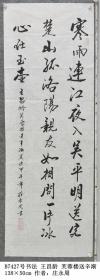 寒雨連江夜入吴平明送客
楚山孤洛陽親友如相問一片冰
心在玉壺
B7427号书法 王昌龄 芙蓉楼送辛渐
138×50cm 作者：庄永周